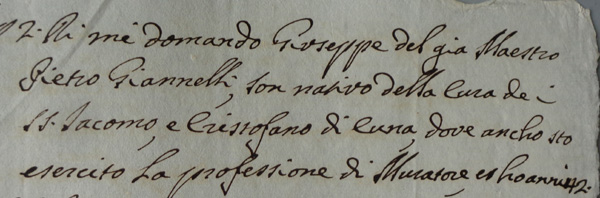 2. Ri mi domando Giuseppe del gia Maestro
Pietro Giannelli, son nativo della Cura de i
SS. Iacomo, e Cristofano di Cuna, dove ancho sto
esercito La professione di Muratore et ho anni 42.